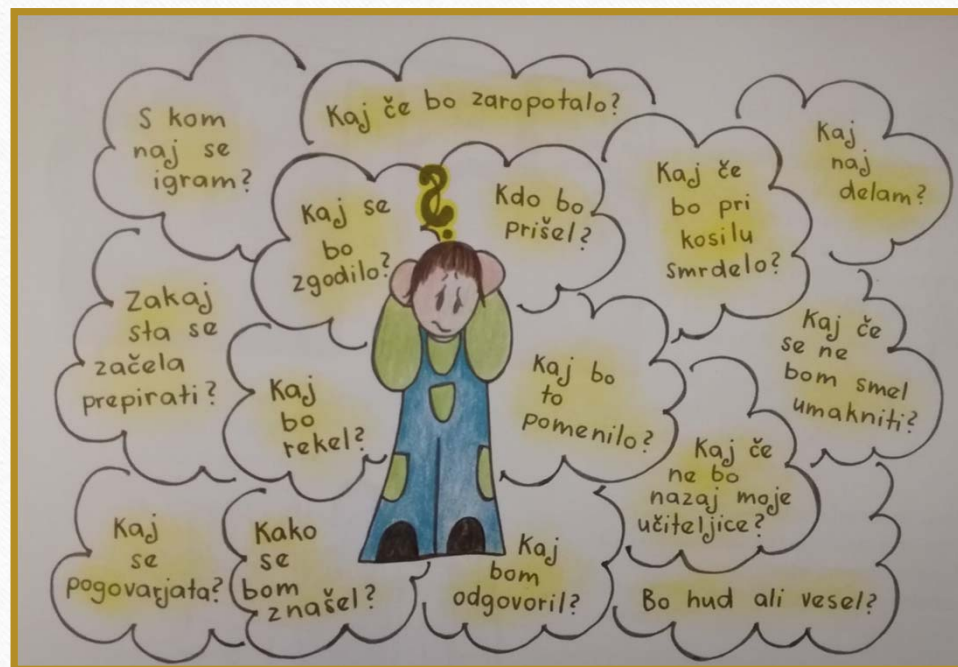 S kom
naj se
igram?
Kaj če bo zaropotalo?
Kaj
naj
delam?
Kaj se
bo
zgodilo?
?
Kdo bo
prišel?
Kaj če
bo pri
kosilu
smrdelo?
Zakaj
sta se
začela
prepirati?
Kaj
bo
rekel?
Kaj bo
to
pomenilo?
Kaj če
se ne
bom smel
umakniti?
Kaj če
ne bo
nazaj moje
učiteljice?
Kaj
se
pogovarjata?
Kako
se
bom
znašel?
Kaj
bom
odgovoril?
Bo hud ali vesel?